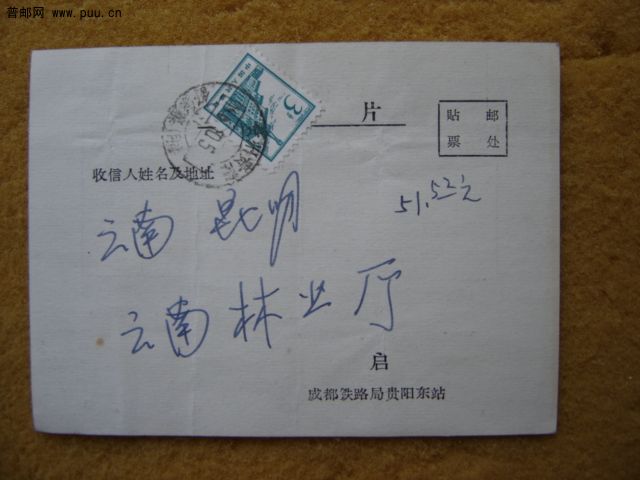 普邮网 www.puu.cn
3
片
貼 邮
票 处
收信人姓名及地址
51.52元
云南 昆明
云南林业厅
启
成都铁路局贵阳东站